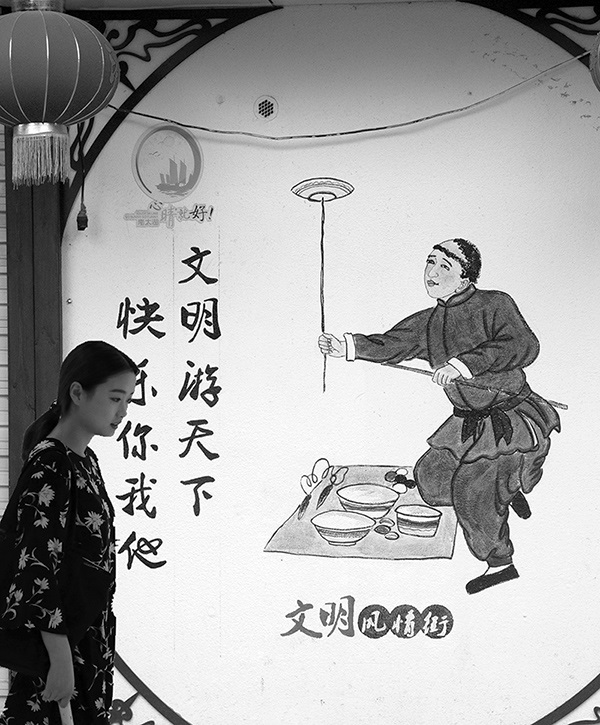 心
晴就好!
文明游天下
快乐你我他
文明风情街